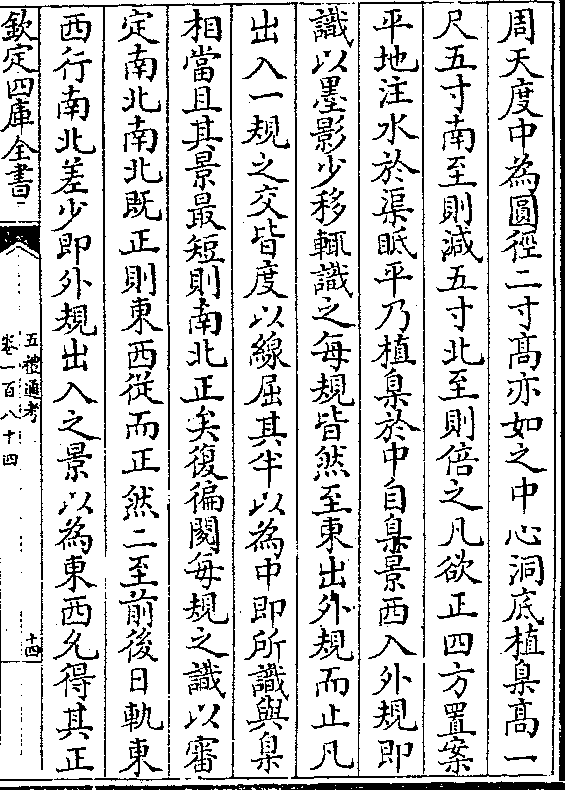 周天度中為圓徑二寸髙亦如之中心洞底植臬髙一
尺五寸南至則減五寸北至則倍之凡欲正四方置案
平地注水於渠眡平乃植臬於中自臬景西入外規即
識以墨影少移輒識之每規皆然至東出外規而止凡
出入一規之交皆度以線屈其半以為中即所識與臬
相當且其景最短則南北正矣復徧閱每規之識以審
定南北南北既正則東西從而正然二至前後日軌東
西行南北差少即外規出入之景以為東西允得其正
欽定四庫全書
五禮通考
卷一百八十四
十四